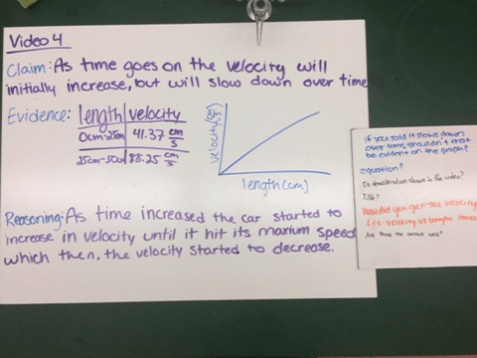 Video 4
Claim: As time goes on the velocity will
initially increase, but will slow down over time
Evidence:
length velocity
0cm-25cm 41.37 cm/s
25cm-50cm 88.25 cm/s
velocity
length(cm)
Reasoning: As time increased the car started to
increase in velocity until it hit its maxium speed
which then, the velocity started to decrease.
if you said it slows down
over time, shouldn't that
be evident on the graph?
equation?
Is deceleration shown in the video?
how did you get the velocity